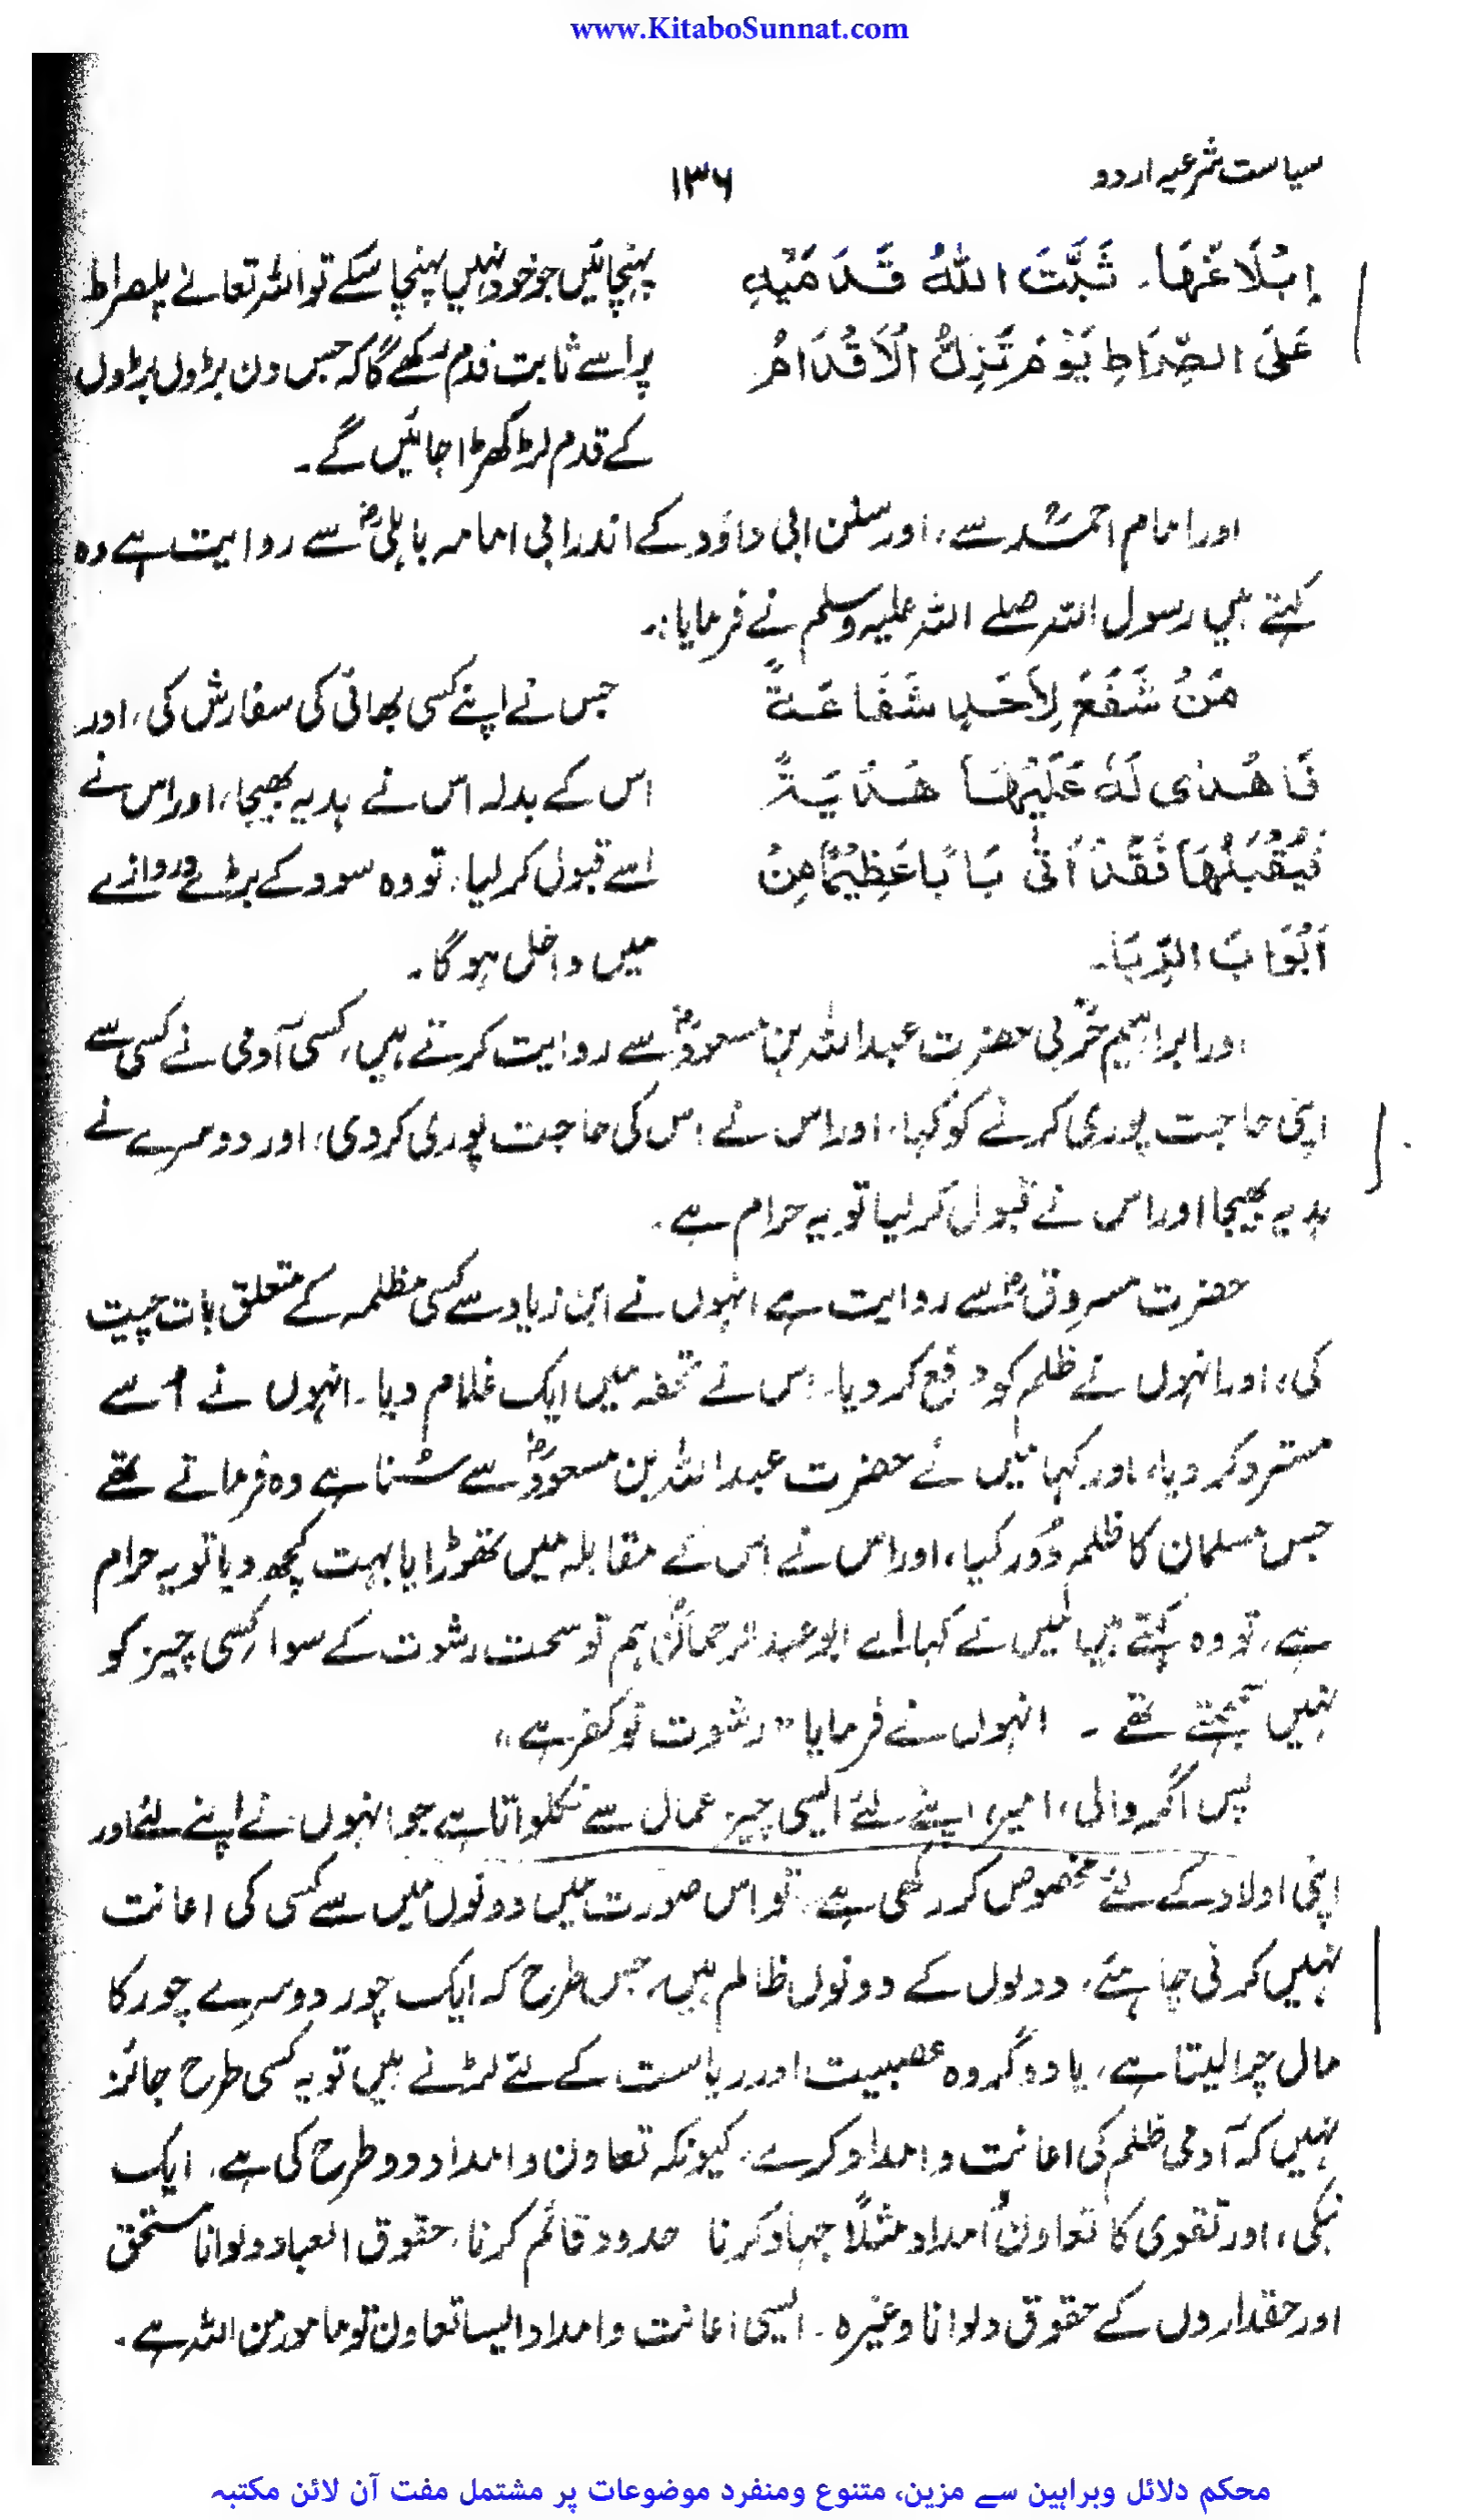 www.KitaboSunnat.com
سیاست شرعیہ اردو
۱۳۶
إِبْلَاغَهَا۔ ثَبَّتَ اللهُ قَدَمَيْهِ
عَلَى الصِّرَاطِ يَوْمَ تَزِلُّ الْأَقْدَامُ
پہنچائیں جو خود نہیں پہنچا سکے تو اللہ تعالےٰ پلصراط
پر اسے ثابت قدم رکھے گا کہ جس دن بڑوں بڑوں
کے قدم لڑکھڑا جائیں گے۔
اور امام احمدؒ سے، اور سنن ابی داؤد کے اندر ابی امامہ باہلیؓ سے روایت ہے وہ
کہتے ہیں رسول اللہ صلے اللہ علیہ وسلم نے فرمایا:۔
مَنْ شَفَعَ لِأَحَدٍ شَفَاعَةً
فَاَهْدٰى لَهٗ عَلَيْهَا هَدْيَةً
فَيَقْبَلُهَا فَقَدْ اَتٰى بَابًا عَظِيْمًا مِنْ
اَبْوَابَ الرِّبَا۔
جس نے اپنے کسی بھائی کی سفارش کی، اور
اس کے بدلہ اس نے ہدیہ بھیجا، اور اس نے
اسے قبول کر لیا، تو وہ سود کے بڑے دروازے
میں داخل ہو گا۔
اور ابراہیم حربی حضرت عبداللہ بن مسعودؓ سے روایت کرتے ہیں، کسی آدمی نے کسی سے
اپنی حاجت پوری کرنے کو کہا، اور اس نے اس کی حاجت پوری کر دی، اور دوسرے نے
ہدیہ بھیجا اور اس نے قبول کر لیا تو یہ حرام ہے۔
حضرت مسروقؓ سے روایت ہے انہوں نے ابن زیاد سے کسی مظلمہ کے متعلق بات چیت
کی، اور انہوں نے ظلم کو دفع کر دیا۔ اس نے تحفہ میں ایک غلام دیا۔ انہوں نے اسے
مسترد کر دیا، اور کہا میں نے حضرت عبداللہ بن مسعودؓ سے سُنا ہے وہ فرماتے تھے
جس مسلمان کا ظلم دُور کیا، اور اس نے اس کے مقابلہ میں تھوڑا یا بہت کچھ دیا تو یہ حرام
ہے، تو وہ کہتے ہیں میں نے کہا اے ابو عبدالرحمانؓ ہم تو سحت رشوت کے سوا کسی چیز کو
نہیں سمجھتے تھے ۔ انہوں نے فرمایا "رشوت تو کفر ہے"
پس اگر والی، امیر، اپنے لئے ایسی چیز عمال سے نکلواتا ہے جو انہوں نے اپنے لئے اور
اپنی اولاد کے لئے مخصوص کر رکھی ہے، تو اس صورت میں دونوں میں سے کسی کی اعانت
نہیں کرنی چاہئے، دونوں کے دونوں ظالم ہیں، جس طرح کہ ایک چور دوسرے چور کا
مال چرا لیتا ہے، یا دو گروہ عصبیت اور ریاست کے لئے لڑنے ہیں تو یہ کسی طرح جائز
نہیں کہ آدمی ظلم کی اعانت و امداد کرے، کیونکہ تعاون و امداد دو طرح کی ہے، ایک
نیکی، اور تقوی کا تعاون و امداد مثلاً جہاد کرنا حدود قائم کرنا، حقوق العباد دلوانا مستحق
اور حقداروں کے حقوق دلوانا وغیرہ۔ ایسی اعانت و امداد ایسا تعاون تو مامور من اللہ ہے۔
محکم دلائل وبراہین سے مزین، متنوع ومنفرد موضوعات پر مشتمل مفت آن لائن مکتبہ